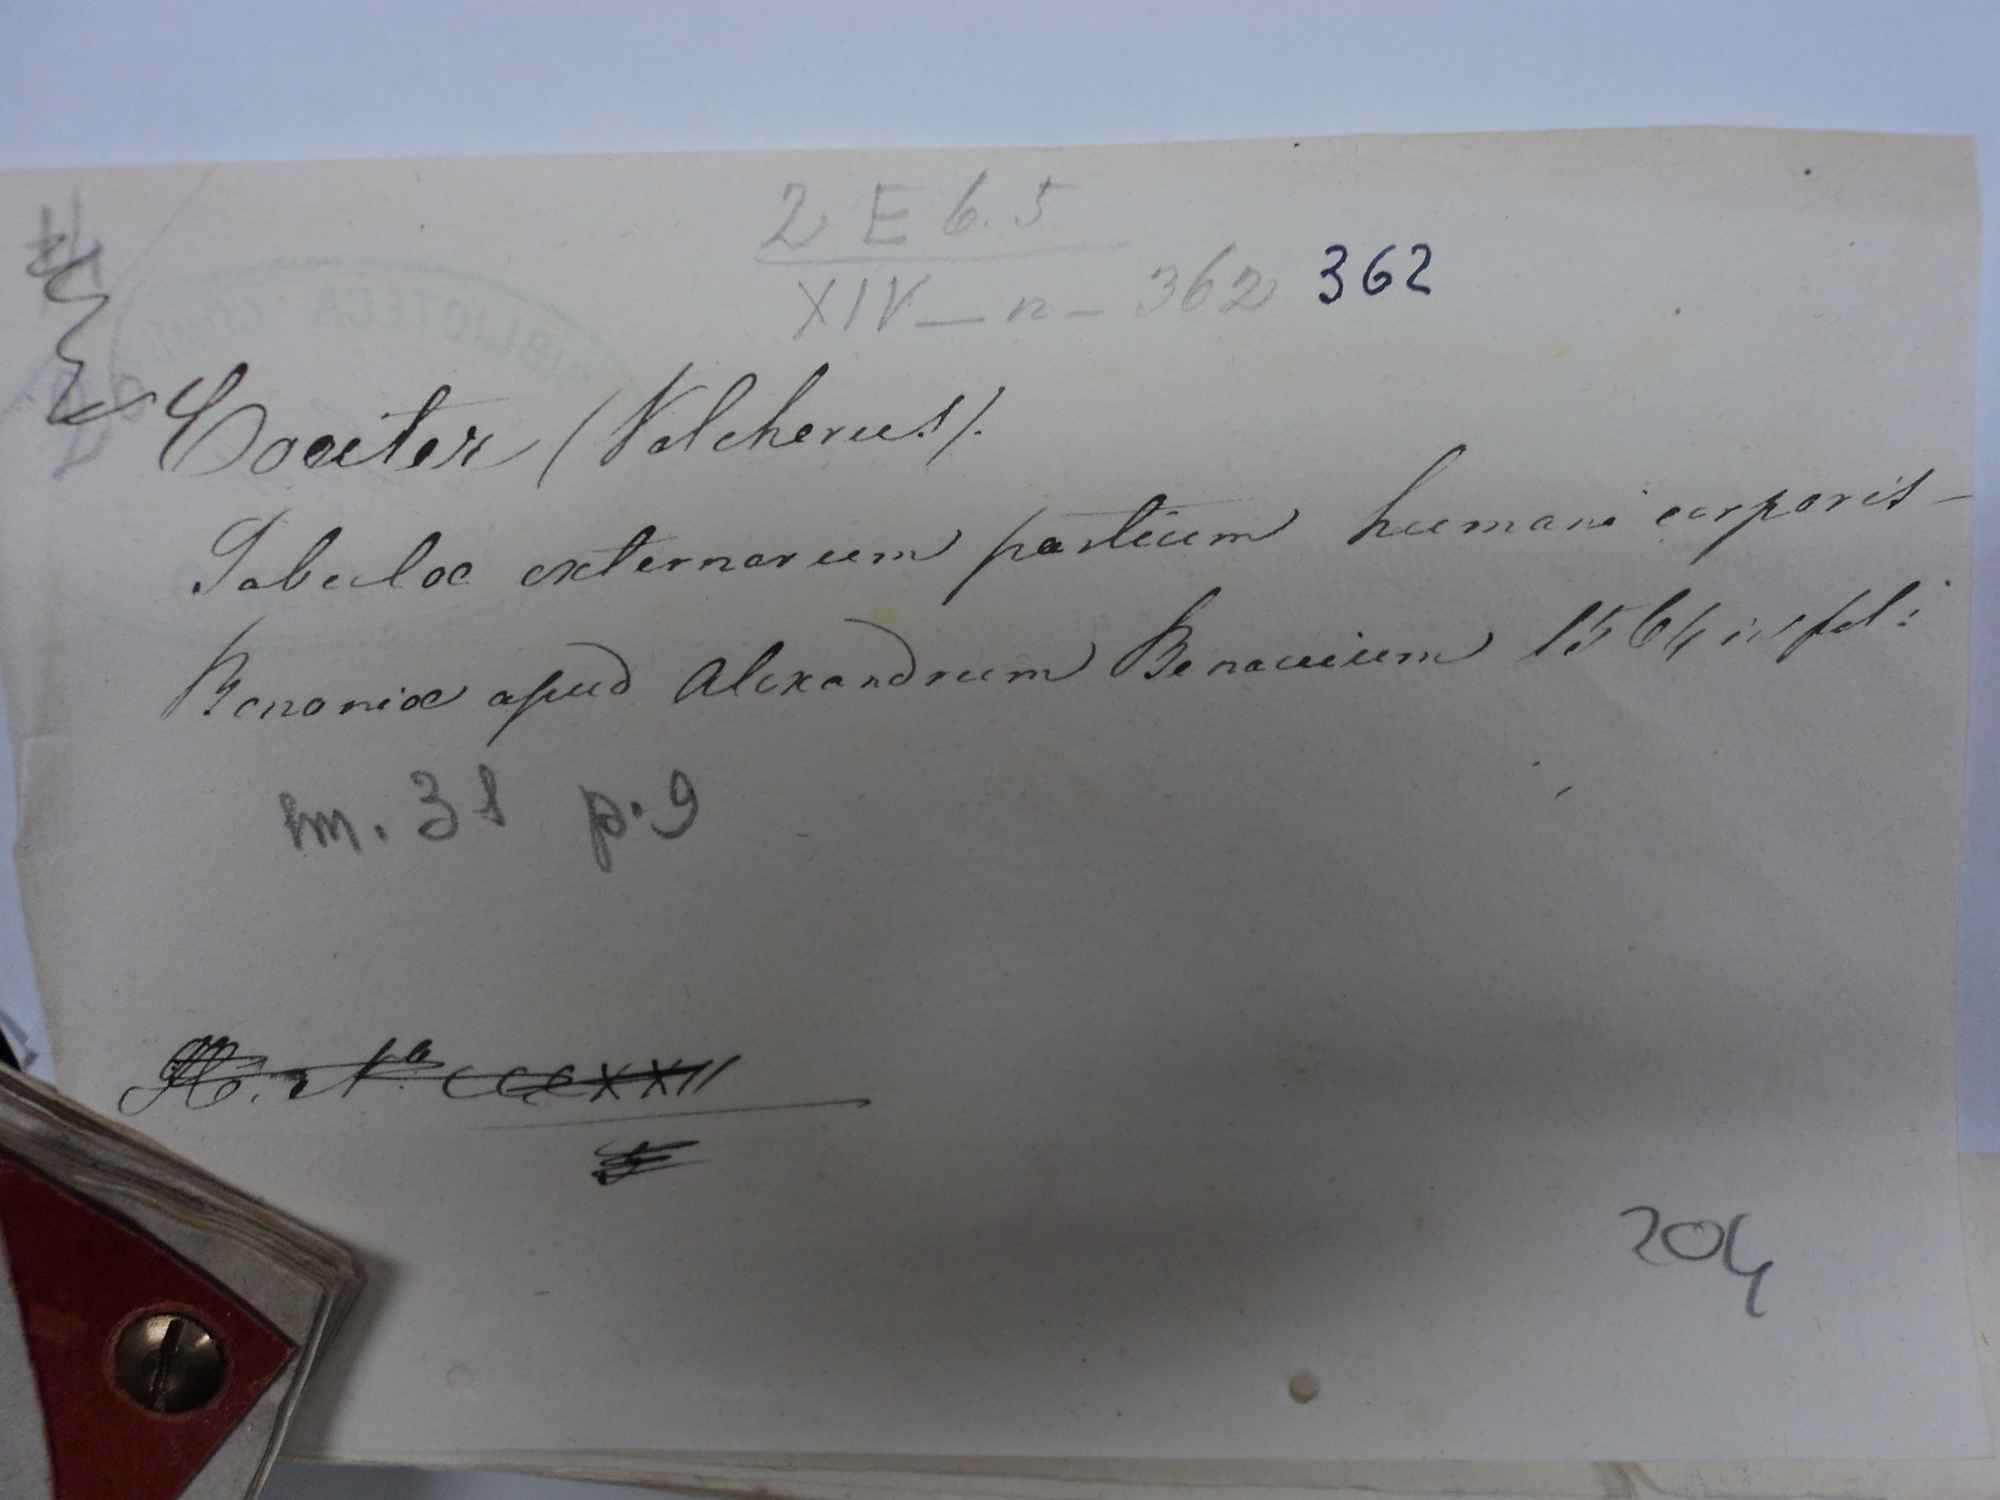 2 E 6.5
XIV - n - 362 362
Coeiter (Volcherus).
Tabulae externarum partium humani corporis -
Bononiae apud Alexandrum Benacium 1564 in fol:
m. 31 p. 9
N° CCCXXIII
204
BIBLIOTECA COMU